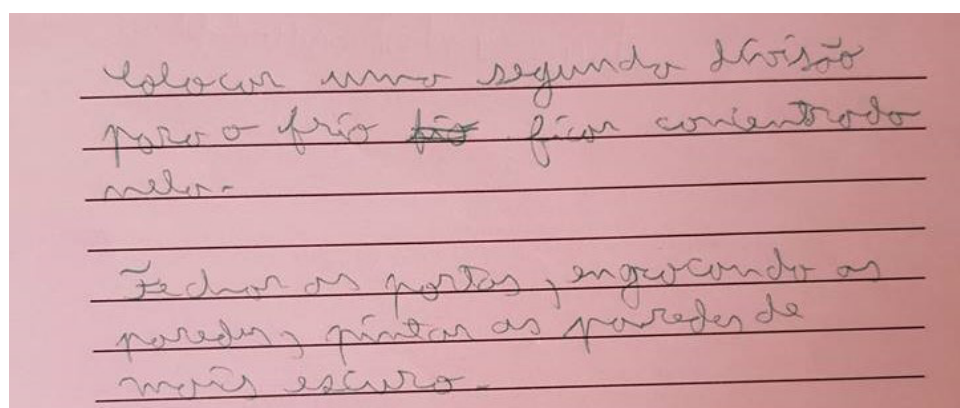 Colocar uma segunda divisão
para o frio fio ficar concentrado
nela.
Fechar as portas, engrocando as
paredes, pintar as paredes de
mais escuro.